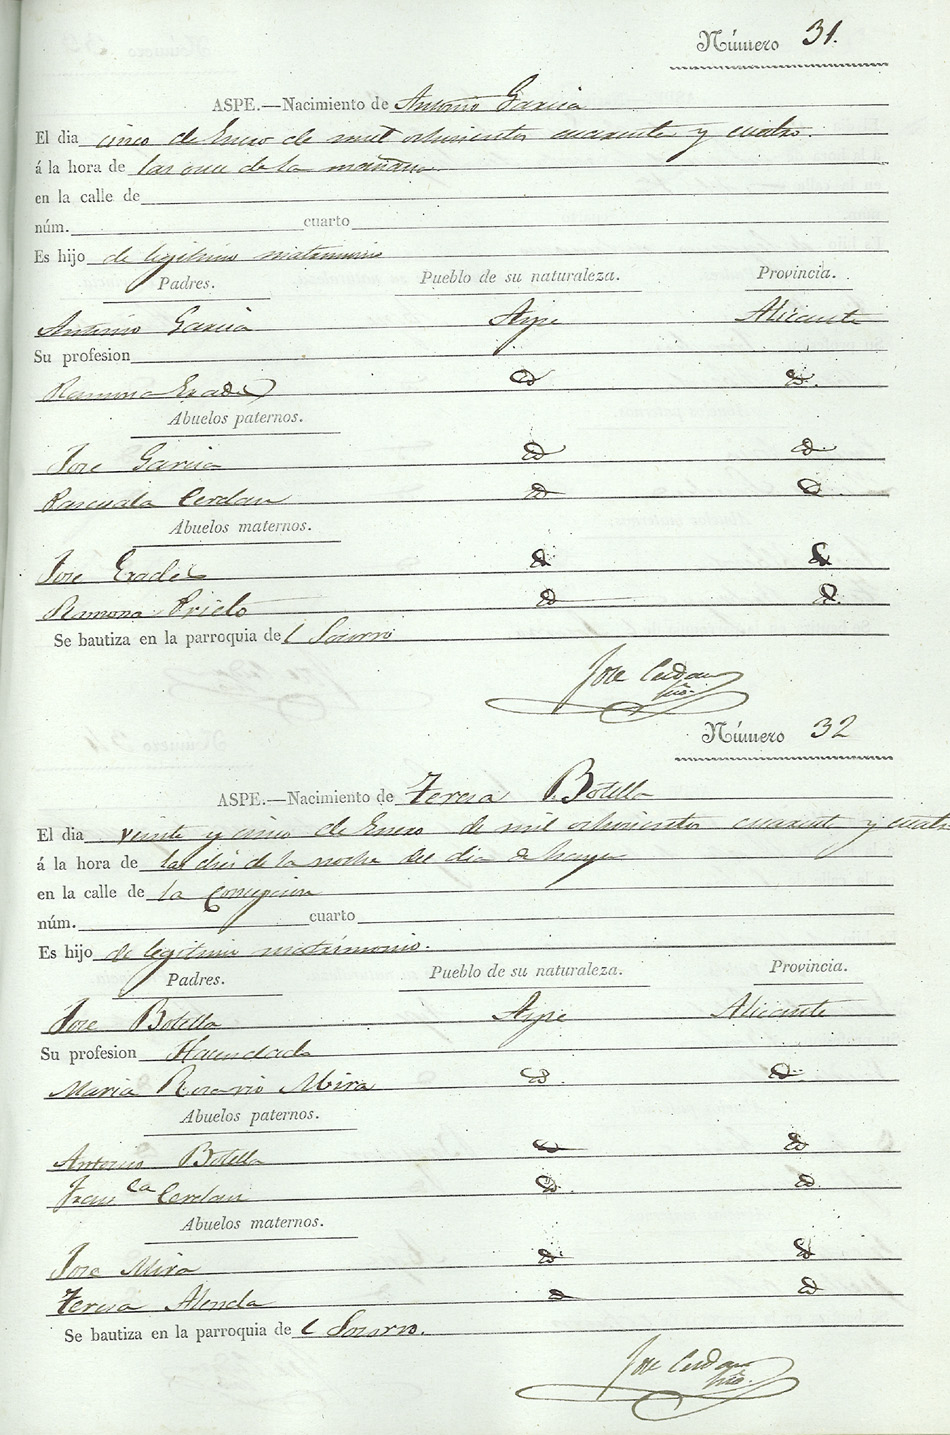 Número 31.
ASPE.—Nacimiento de Antonio Garcia
El dia cinco de Enero de mil ochocientos cuarenta y cuatro.
á la hora de las once de la mañana.
en la calle de
núm. cuarto
Es hijo de legitimo matrimonio
Padres. Pueblo de su naturaleza. Provincia.
Antonio Garcia Aspe Alicante
Su profesion
Ramona Erades id id.
Abuelos paternos.
Jose Garcia id id
Pascuala Cerdan id id
Abuelos maternos.
Jose Erades id id
Ramona Prieto id id
Se bautiza en la parroquia del Socorro
Jose Cerdan
Número 32
ASPE.—Nacimiento de Teresa Botella
El dia veinte y cinco de Enero de mil ochocientos cuarenta y cuatro
á la hora de las dies de la noche del dia de
en la calle de la Concepcion
núm. cuarto
Es hijo de legitimo matrimonio.
Padres. Pueblo de su naturaleza. Provincia.
Jose Botella Aspe Alicante
Su profesion Hacendado
Maria Rosario Mira id. id.
Abuelos paternos.
Antonio Botella id id
Franca Cerdan id. id
Abuelos maternos.
Jose Mira id id
Teresa Alenda id id
Se bautiza en la parroquia del Socorro.
Jose Cerdan